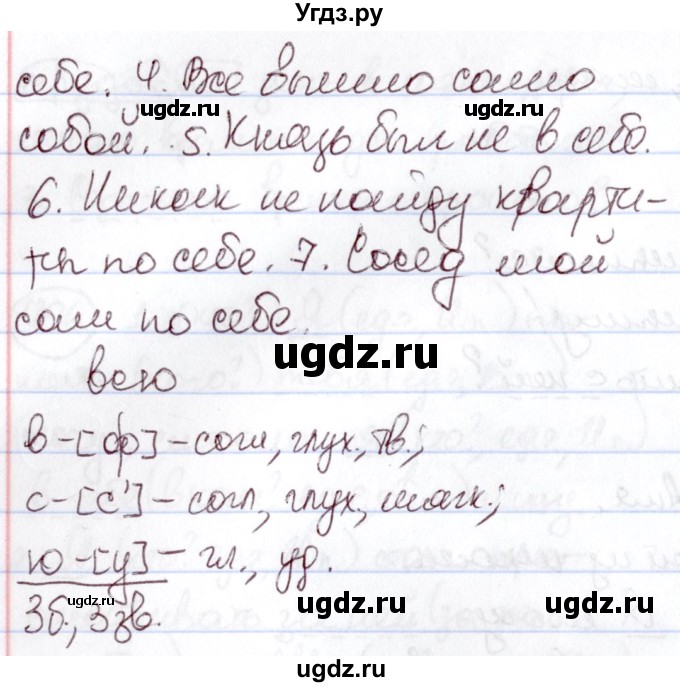 Угдз.ру
себе. 4. Все вышло само
ugdz.ru ugdz.ru
собой. 5. Князь был не в себе.
6. Никак не найду кварти-
ры по себе. 7. Сосед мой
сам по себе.
ugdz.ru ugdz.ru
всю
в-[ф]-согл, глух., тв.;
с-[с']-согл, глух, мягк.;
ю-[у]-гл., уд.
ugdz.ru ugdz.ru ugdz.ru
3б., 3зв.
ugdz.ru